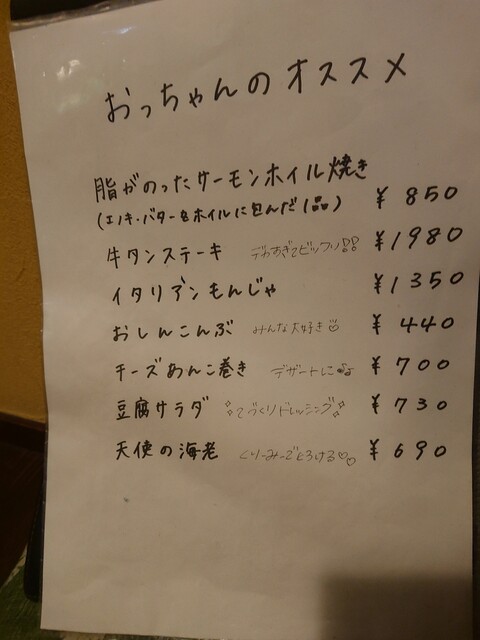 おっちゃんのオススメ
脂がのったサーモンホイル焼き ¥850
(エノキ・バターをホイルに包んだ1品)
牛タンステーキ デカすぎてビックリ!! ¥1980
イタリアンもんじゃ ¥1350
おしんこんぶ みんな大好き♡ ¥440
チーズあんこ巻き デザートに♪ ¥700
豆腐サラダ てづくりドレッシング ¥730
天使の海老 くりーみーでとろける♡♡ ¥690